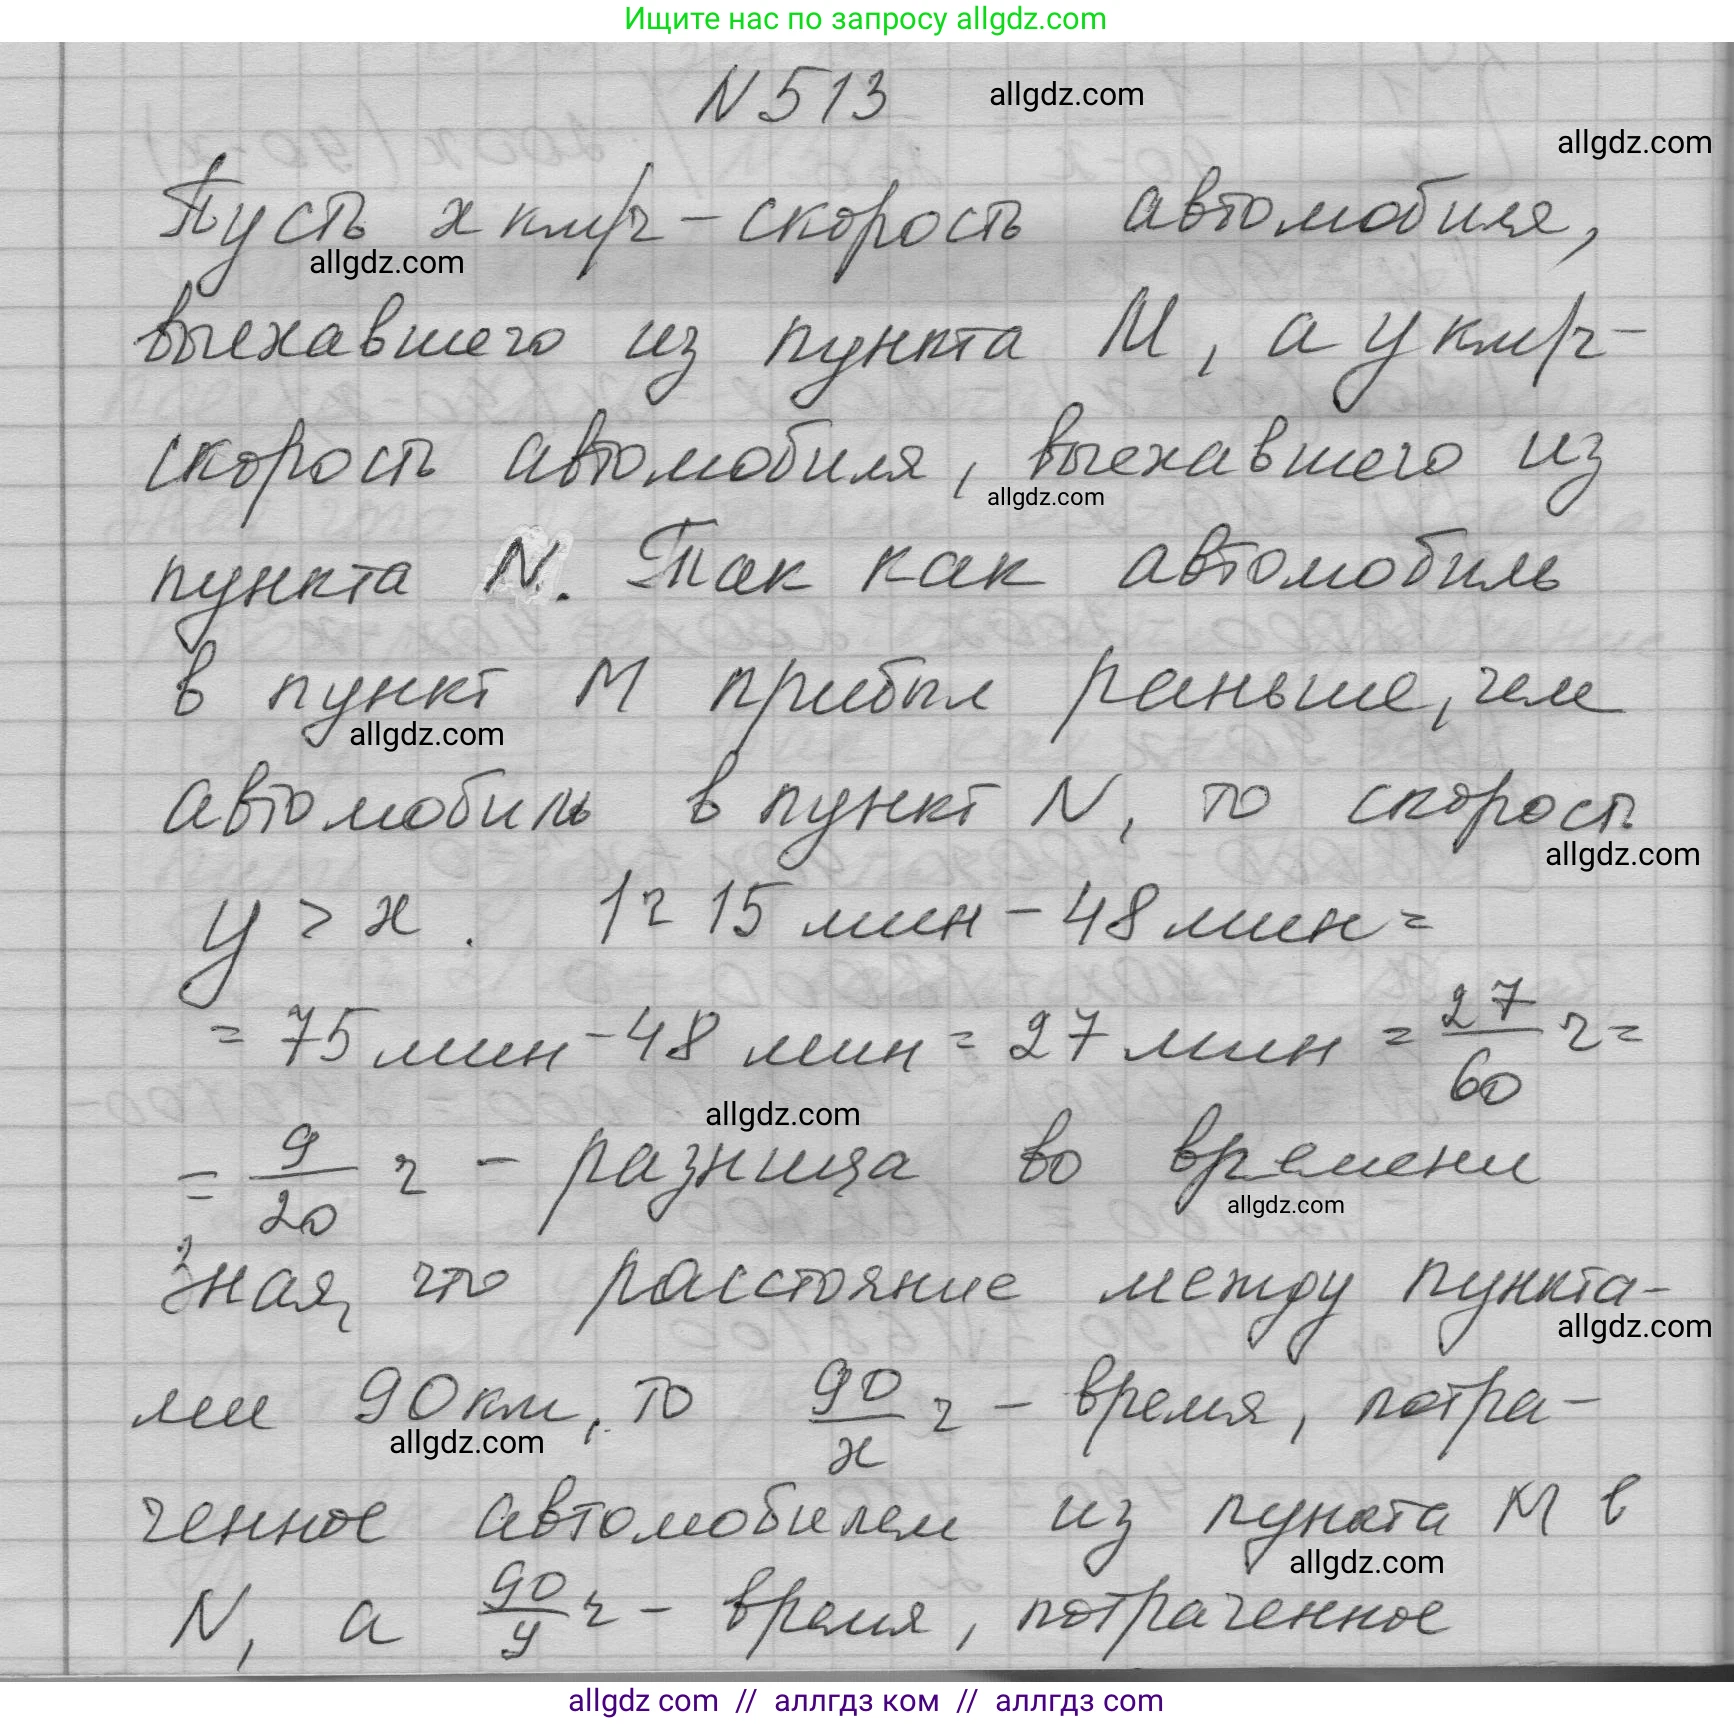 Ищите нас по запросу allgdz.com
N 513 allgdz.com
allgdz.com
Пусть x км/ч – скорость автомобиля,
allgdz.com
выехавшего из пункта M, а y км/ч –
скорость автомобиля, выехавшего из
allgdz.com
пункта N. Так как автомобиль
в пункт M прибыл раньше, чем
allgdz.com
автомобиль в пункт N, то скорость
allgdz.com
y > x. 1ч 15 мин – 48 мин =
= 75 мин – 48 мин = 27 мин = 27/60 ч =
allgdz.com
= 9/20 ч – разница во времени
allgdz.com
Зная, что расстояние между пункта-
allgdz.com
ми 90 км, то 90/x ч – время, потра-
allgdz.com
ченное автомобилем из пункта M в
allgdz.com
N, а 90/y ч – время, потраченное
allgdz com // аллгдз ком // аллгдз com